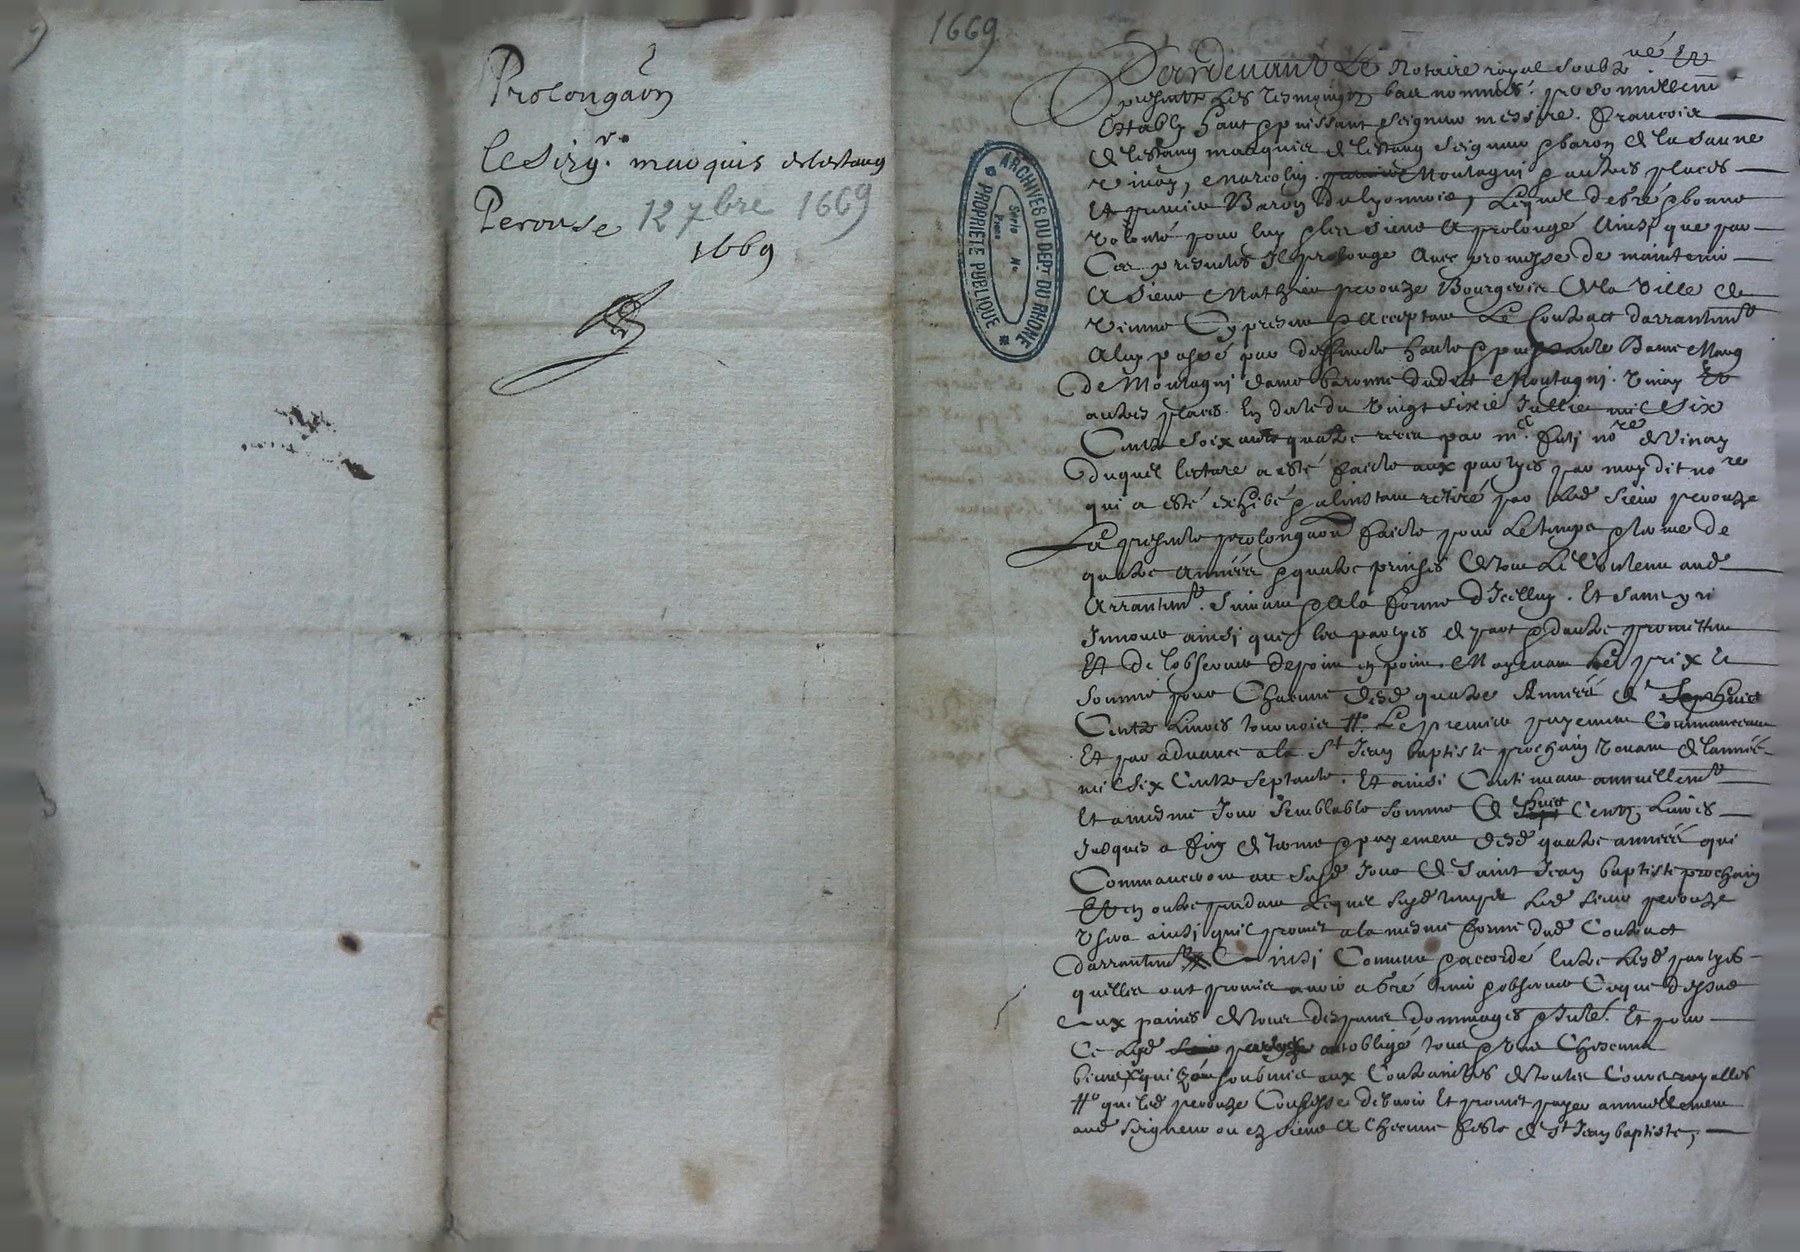 Prolonga͠on
le Seigr. marquis de lestang
Perouse 12 7bre 1669
1669
1669
ARCHIVES DU DEPT. DU RHONE
PROPRIÉTÉ PUBLIQUE
Série No
Pardevant Le Notaire royal soubzné Et
presents Les tesmoingz bas nommés. personnellemt
Estably haut & puissant seigneur messire. francois
de lestang marquis de lestang seigneur & baron de la saune
vinay, Montagni & autres places
Et premier Baron du lyonnois, Lequel de gré & bonne
volonté pour luy & les siens A prolongé Ainsy que par
Ces presentes Il prolonge Avec promesse de maintenir
A sieur Mathieu perouze Bourgeois de la ville de
vienne Cy present & acceptant Le Contract darrantemt
A luy passé par deffuncte haute & puissante Dame Marg
de Montagni dame baronne dudict Montagni. vinay Et
autres places. En date du vingt sixie Jullie mil six
Centz soixante quatre receu par me. no.re de vinay
Duquel lecture a esté faicte aux partyes par moy dit no.re
qui a esté exhibé & a linstant retiré par Led sieur perouze
La presente prolonga͠on faicte pour Le temps & terme de
quatre Années & quatre prinses Et tout Le Contenu aud
Arrantemt. suivant & a la forme dIcelluy. Et sans y ri
Innover ainsi que les partyes de part & dautre promettent
Et de lobserver de point en point. Moyenant Le prix Et
somme pour Chacune desd quatre Années de huict
Centz Livres tournois Le premier payement Commancera
Et par advance a la St Jean baptiste prochain venant de lannée
mil six Centz septante. Et ainsi Continuant annuellemt
Et a mesme Jour semblable somme de huict Centz Livres
Jusques a fin de terme & payement desd quatre années qui
Commanceront au susd Jour de saint Jean baptiste prochain
Et en outre pendant Lequel susd temps Led sieur perouze
usera ainsi quil promet a la mesme forme dud Contract
darrantemt Ainsi Convenu & accordé Entre Lesd partyes
quelles ont promis avoir a gré tenir & observer Ce que dessus
Aux paines de tous despans dommages & Interetz. Et pour
Ce Lesd partyes ont obligé tous & uns Chescuns
biens quilz ont soubmis aux Contraintes de toutes Cours royalles
que led perouze Confesse debvoir Et promet payer annuellement
aud seigneur ou ez siens A Chacune feste de St Jean baptiste,